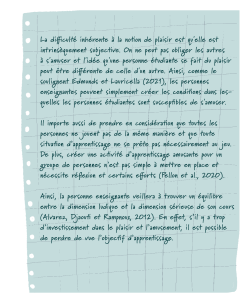 La difficulté inhérente à la notion de plaisir est qu'elle est
intrinsèquement subjective. On ne peut pas obliger les autres
à s'amuser et l'idée qu'une personne étudiante se fait du plaisir
peut être différente de celle d'un autre. Ainsi, comme le
soulignent Edmunds et Lauricella (2021), les personnes
enseignantes peuvent simplement créer les conditions dans les-
quelles les personnes étudiantes sont susceptibles de s'amuser.
Il importe aussi de prendre en considération que toutes les
personnes ne jouent pas de la même manière et que toute
situation d'apprentissage ne se prête pas nécessairement au jeu.
De plus, créer une activité d'apprentissage amusante pour un
groupe de personnes n'est pas simple à mettre en place et
nécessite réflexion et certains efforts (Pellon et al., 2020).
Ainsi, la personne enseignante veillera à trouver un équilibre
entre la dimension ludique et la dimension sérieuse de son cours
(Alvarez, Djaouti et Rampnoux, 2012). En effet, s'il y a trop
d'investissement dans le plaisir et l'amusement, il est possible
de perdre de vue l'objectif d'apprentissage.